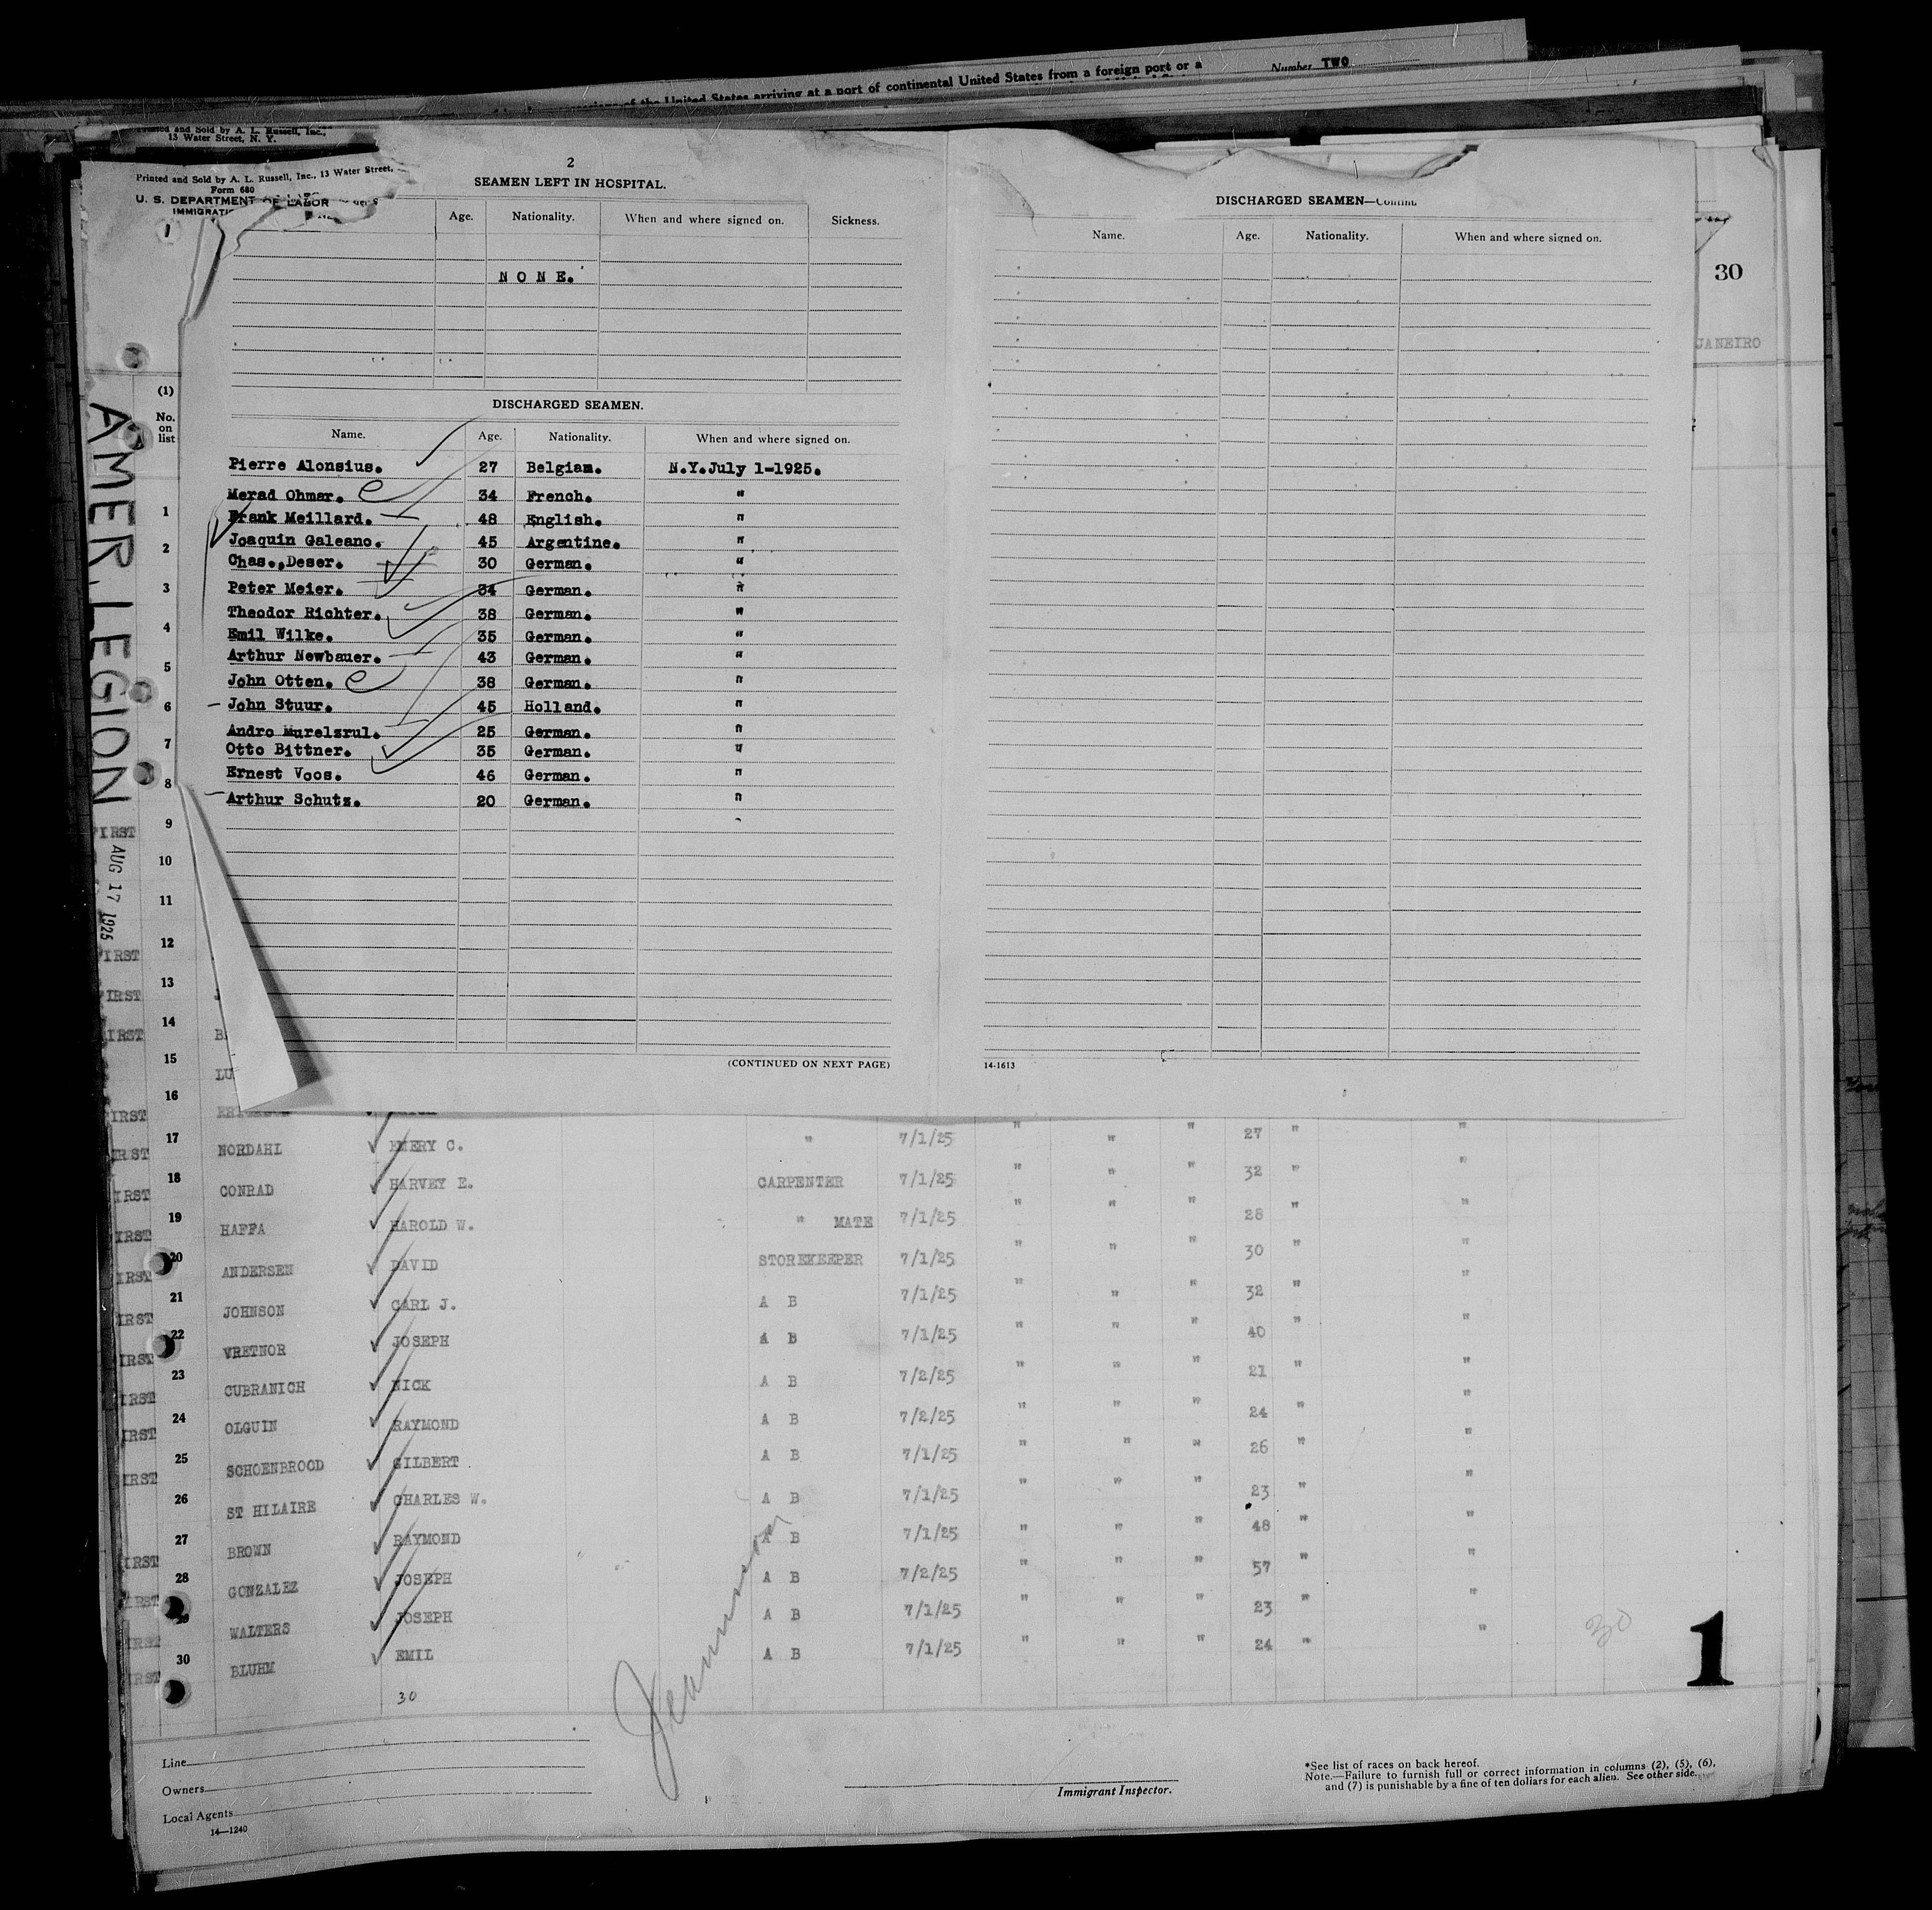 Number TWO
of the United States arriving at a port of continental United States from a foreign port or a
Printed and Sold by A. L. Russell, Inc.,
13 Water Street, N. Y.
Printed and Sold by A. L. Russell, Inc., 13 Water Street,
Form 680
U. S. DEPARTMENT OF LABOR
2
SEAMEN LEFT IN HOSPITAL.
Age. Nationality. When and where signed on. Sickness.
N O N E.
DISCHARGED SEAMEN.
Name. Age. Nationality. When and where signed on.
Pierre Alonsius. 27 Belgian. N.Y.July 1-1925.
Merad Ohmar. 34 French. "
Frank Meillard. 48 English. "
Joaquin Galeano. 45 Argentine. "
Chas.,Deser. 30 German. "
Peter Meier. 34 German. "
Theodor Richter. 38 German. "
Emil Wilke. 35 German. "
Arthur Newbauer. 43 German. "
John Otten. 38 German. "
John Stuur. 45 Holland. "
Andro Murelsrul. 25 German. "
Otto Bittner. 35 German. "
Ernest Voos. 46 German. "
Arthur Schutz. 20 German. "
(CONTINUED ON NEXT PAGE)
DISCHARGED SEAMEN—
Name. Age. Nationality. When and where signed on.
14-1613
30
JANEIRO
AMER. LEGION
AUG 17 1925
(1)
No.
on
list
1
2
3
4
5
6
7
8
9
10
11
12
13
14
15
16
17 NORDAHL EMERY C. " 7/1/25 " " " 27 " "
18 CONRAD HARVEY E. CARPENTER 7/1/25 " " " 32 " "
19 HAFFA HAROLD W. " MATE 7/1/25 " " " 28 " "
20 ANDERSEN DAVID STOREKEEPER 7/1/25 " " " 30 " "
21 JOHNSON CARL J. A B 7/1/25 " " " 32 " "
22 VRETNOR JOSEPH A B 7/1/25 " " " 40 " "
23 CUBRANICH NICK A B 7/2/25 " " " 21 " "
24 OLGUIN RAYMOND A B 7/2/25 " " " 24 " "
25 SCHOENBROOD GILBERT A B 7/1/25 " " " 26 " "
26 ST HILAIRE CHARLES W. A B 7/1/25 " " " 23 " "
27 BROWN RAYMOND A B 7/1/25 " " " 48 " "
28 GONZALEZ JOSEPH A B 7/2/25 " " " 57 " "
29 WALTERS JOSEPH A B 7/1/25 " " " 23 " "
30 BLUHM EMIL A B 7/1/25 " " " 24 " "
30
30
1
Line
Owners
Local Agents
14—1240
Immigrant Inspector.
*See list of races on back hereof.
Note.—Failure to furnish full or correct information in columns (2), (5), (6),
and (7) is punishable by a fine of ten dollars for each alien. See other side.